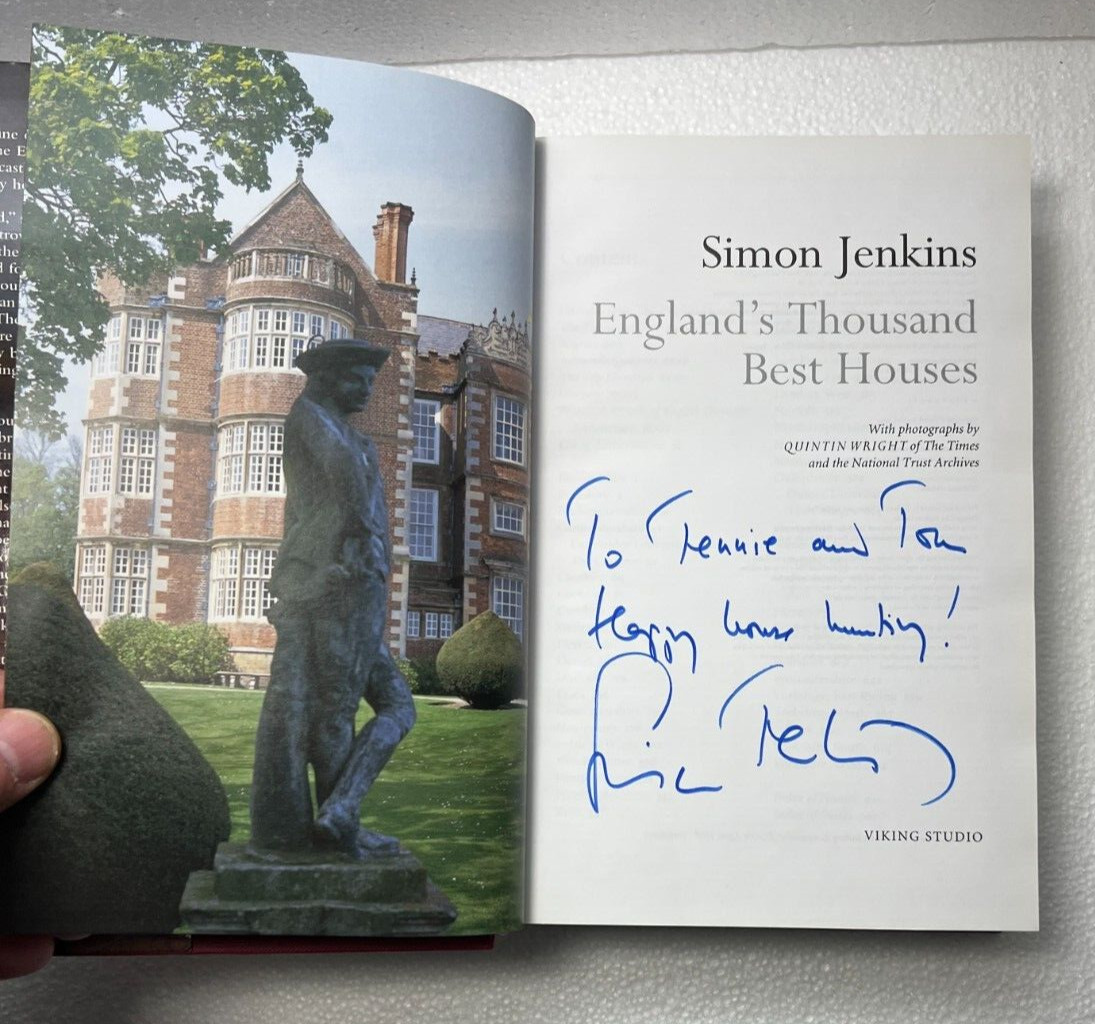 Simon Jenkins
England's Thousand
Best Houses
With photographs by
QUINTIN WRIGHT of The Times
and the National Trust Archives
To Jennie and Tom
Happy house hunting!
Simon Jenkins
VIKING STUDIO